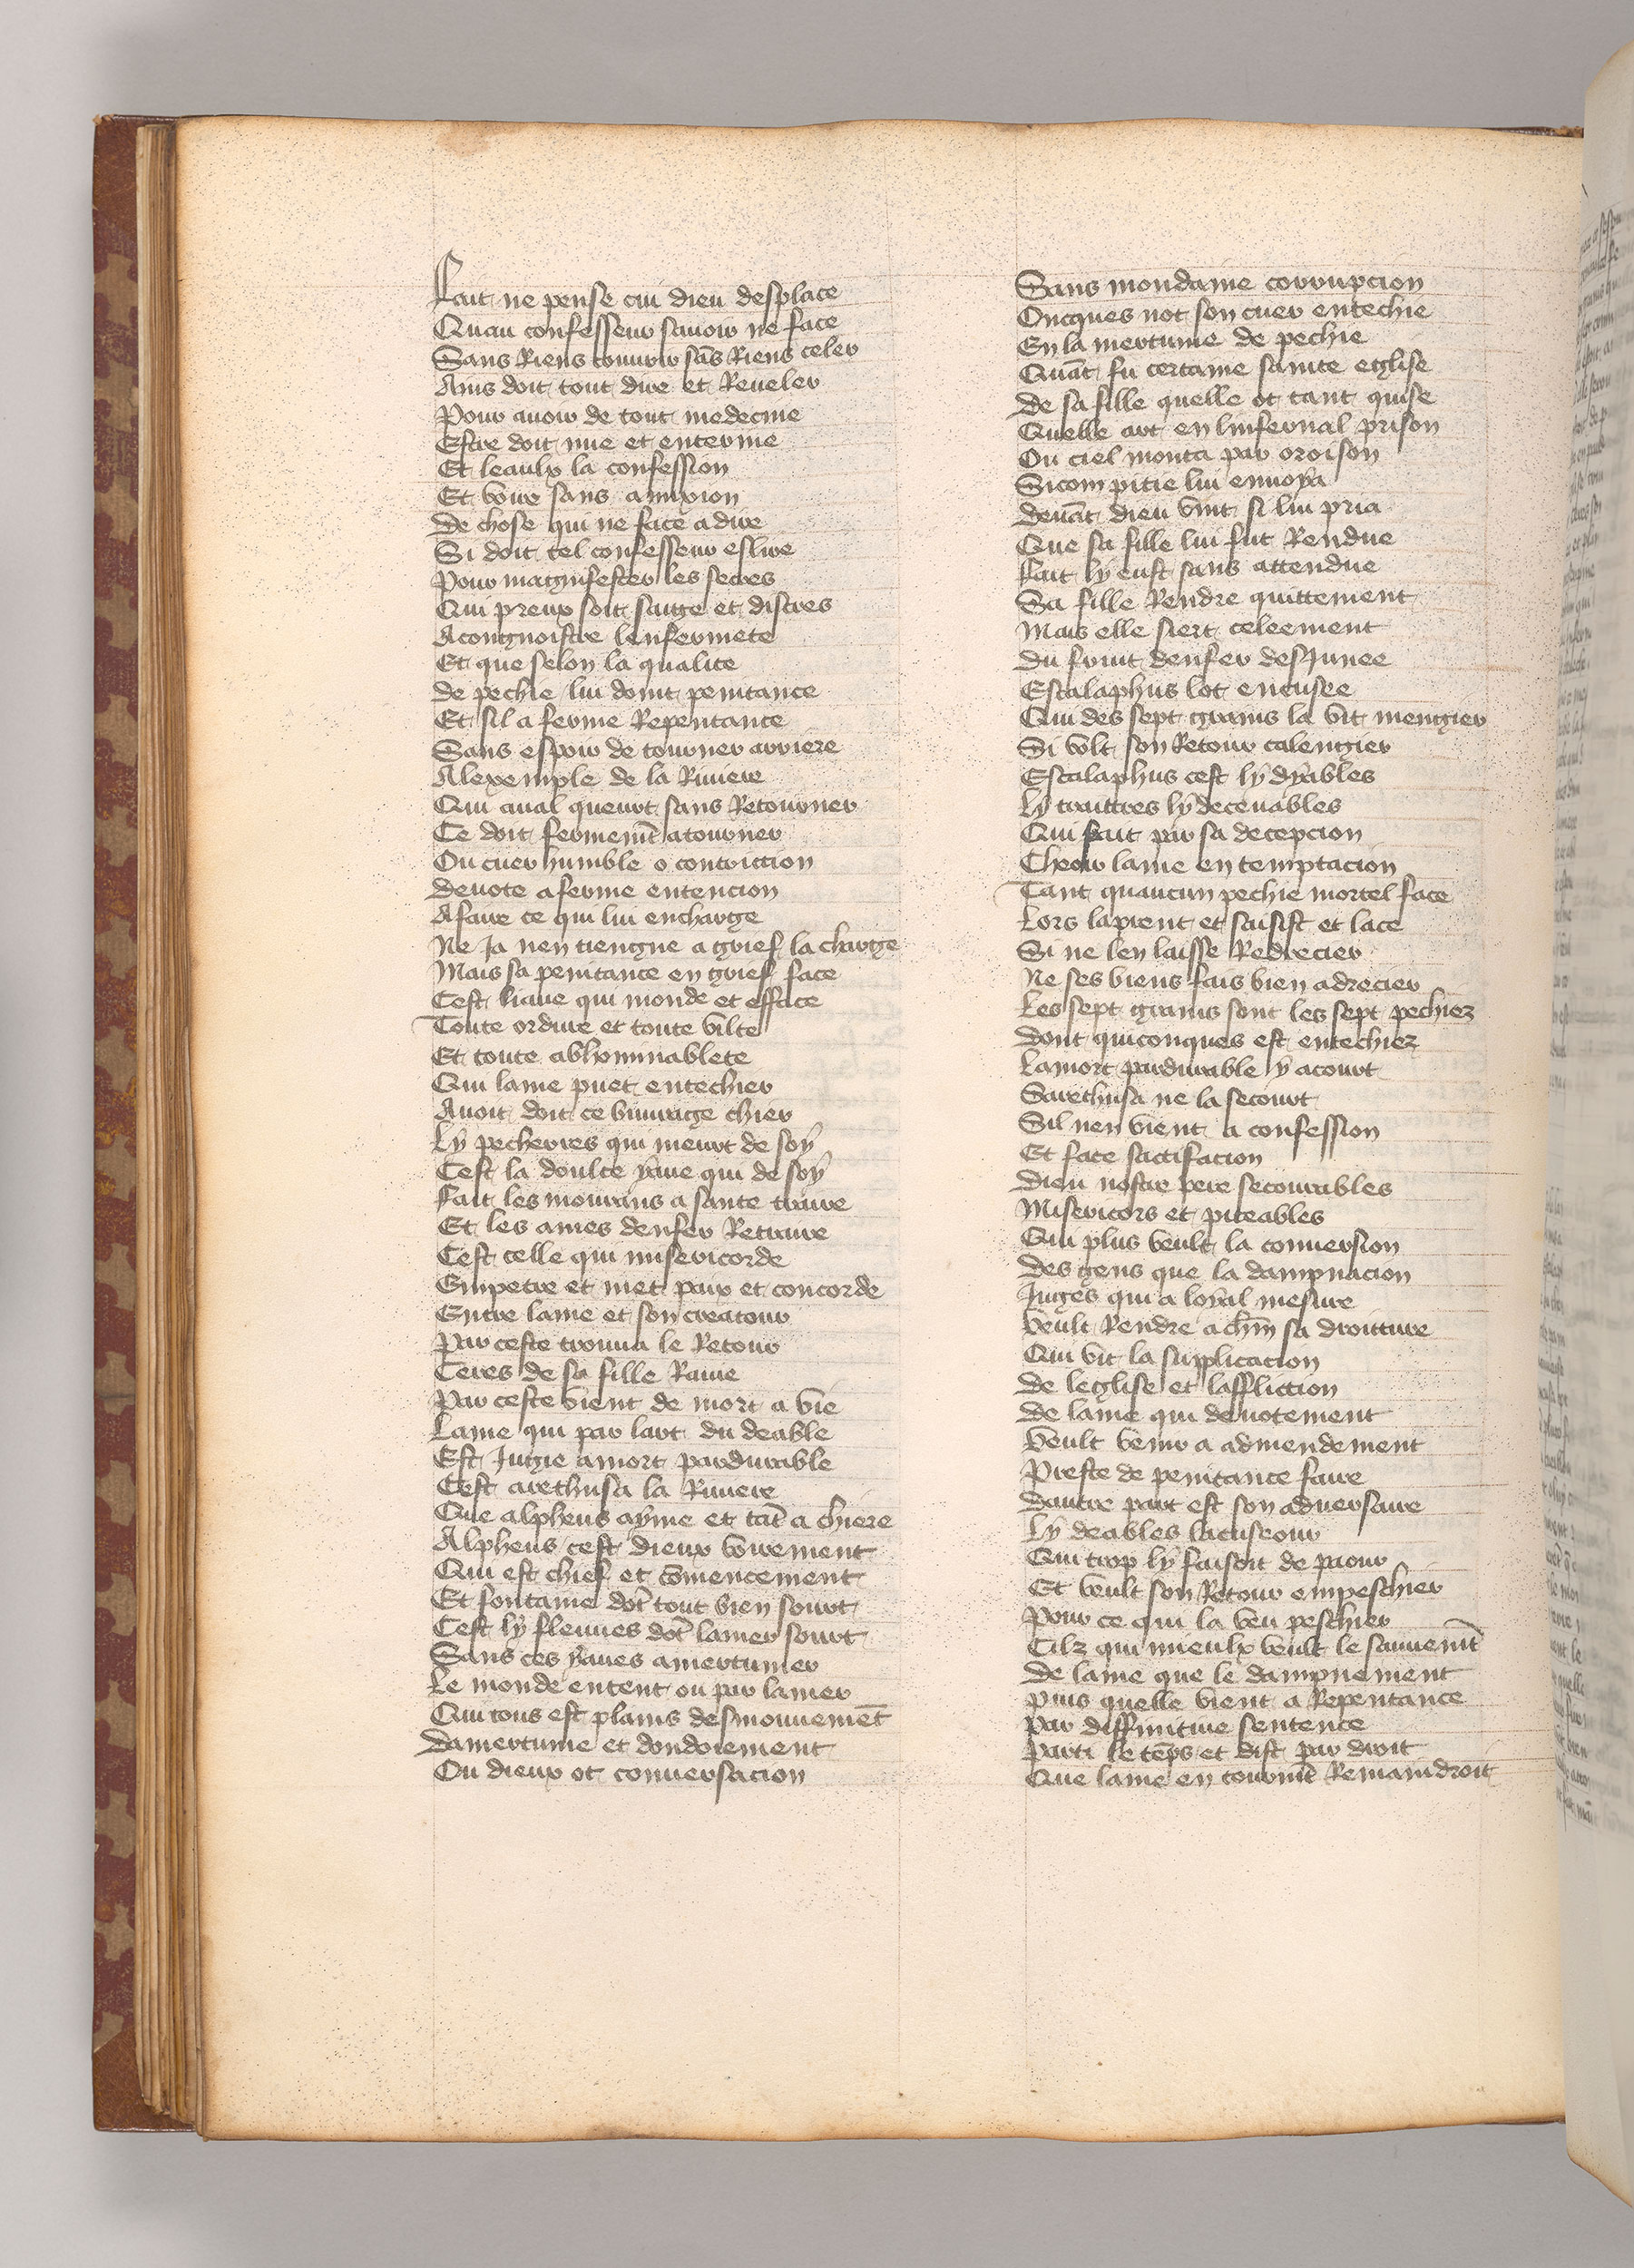 Fait ne pense cui dieu desplace
Quau confesseur sauoir ne face
Sans Riens couurir sãs Riens celer
Ains doit tout dire et Reueler
Pour auoir de tout medecine
Estre doit nue et enterine
Et leaulx la confession
Et voire sans
De chose qui ne face a dire
Si doit tel confesseur eslire
Pour magnifester les secres
Qui preux soit saige et discres
A congnoistre lenfermete
Et que selon la qualite
De pechie lui doint penitance
Et sil a ferme Repentance
Sans espoir de tourner arriere
A lexemple de la Riuiere
Qui aual queurt sans Retourner
Ce doit fermemẽt atourner
Ou cuer humble o contriction
Deuote a ferme entencion
A faire ce qui lui encharge
Ne Ja nen tiengne a grief la charge
Mais sa penitance en grief face
Cest liaue qui monde et efface
Toute ordure et toute vilte
Et toute abhominablete
Qui lame puet entechier
Auoit doit ce buurage chier
Ly pecherres qui meurt de soy
Cest la doulce yaue qui de soy
Fait les mourans a sante traire
Et les ames denfer Retraire
Cest celle qui misericorde
Empetre et met paix et concorde
Entre lame et son creatour
Par ceste trouua le Retour
Ceres de sa fille Rauie
Par ceste vient de mort a vie
Lame qui par lart du deable
Est Jugie a mort pardurable
Cest arethusa la Riuiere
Que alpheus ayme et tãt a chiere
Alpheus cest dieux voirement
Qui est chief et cõmencement
Et fontaine dõt tout bien sourt
Cest ly fleuues dõt lamer sourt
Sans ces yaues amertumer
Le monde entent on par lamer
Qui tous est plains desmouuemẽt
Damertume et dondoiement
Ou dieux ot conuersacion
Sans mondaine corrupcion
Oncques not son cuer entechie
En la mertume de pechie
Quãt fu certaine sainte eglise
De sa fille quelle ot tant quise
Quelle art en linfernal prison
Ou ciel monta par oroison
Sicom pitie lui enuoya
Deuãt dieu vint si lui pria
Que sa fille lui fut Rendue
Fait ly eust sans attendue
Sa fille Rendre quittement
Mais elle siert celeement
Du fruit denfer desJunee
Escalaphus lot encusee
Qui des sept grains la vit mengier
Si volt son Retour calengier
Escalaphus cest ly dyables
Ly traittres ly deceuables
Qui fait par sa decepcion
Cheoir lame en temptacion
Tant quaucun pechie mortel face
Lors laprent et saisist et lace
Si ne len laisse Redrecier
Ne ses biens fais bien adrecier
Les sept grains sont les sept pechiez
Dont quiconques est entechiez
Lamort pardurable y acourt
Sarethusa ne la secourt
Sil nen vient a confession
Et face satifacion
Dieu nostre pere secourables
Misericors et piteables
Qui plus veult la conuersion
Des gens que la dampnacion
Juges qui a loyal mesure
Veult Rendre a chũn sa droitture
Qui vit la supplicacion
De leglise et laffliction
De lame qui deuotement
Veult venir a admendement
Preste de penitance faire
Dautre part est son aduersaire
Ly deables lacuseour
Qui trop ly faisoit de paour
Et veult son Retour empeschier
Pour ce qui la veu peschier
Cilz qui mieulx veult le sauuemẽt
De lame que le dampnement
Puis quelle vient a Repentance
Par diffinitiue sentence
Parti le tẽps et dist par droit
Que lame en tourmẽt Remaindroit